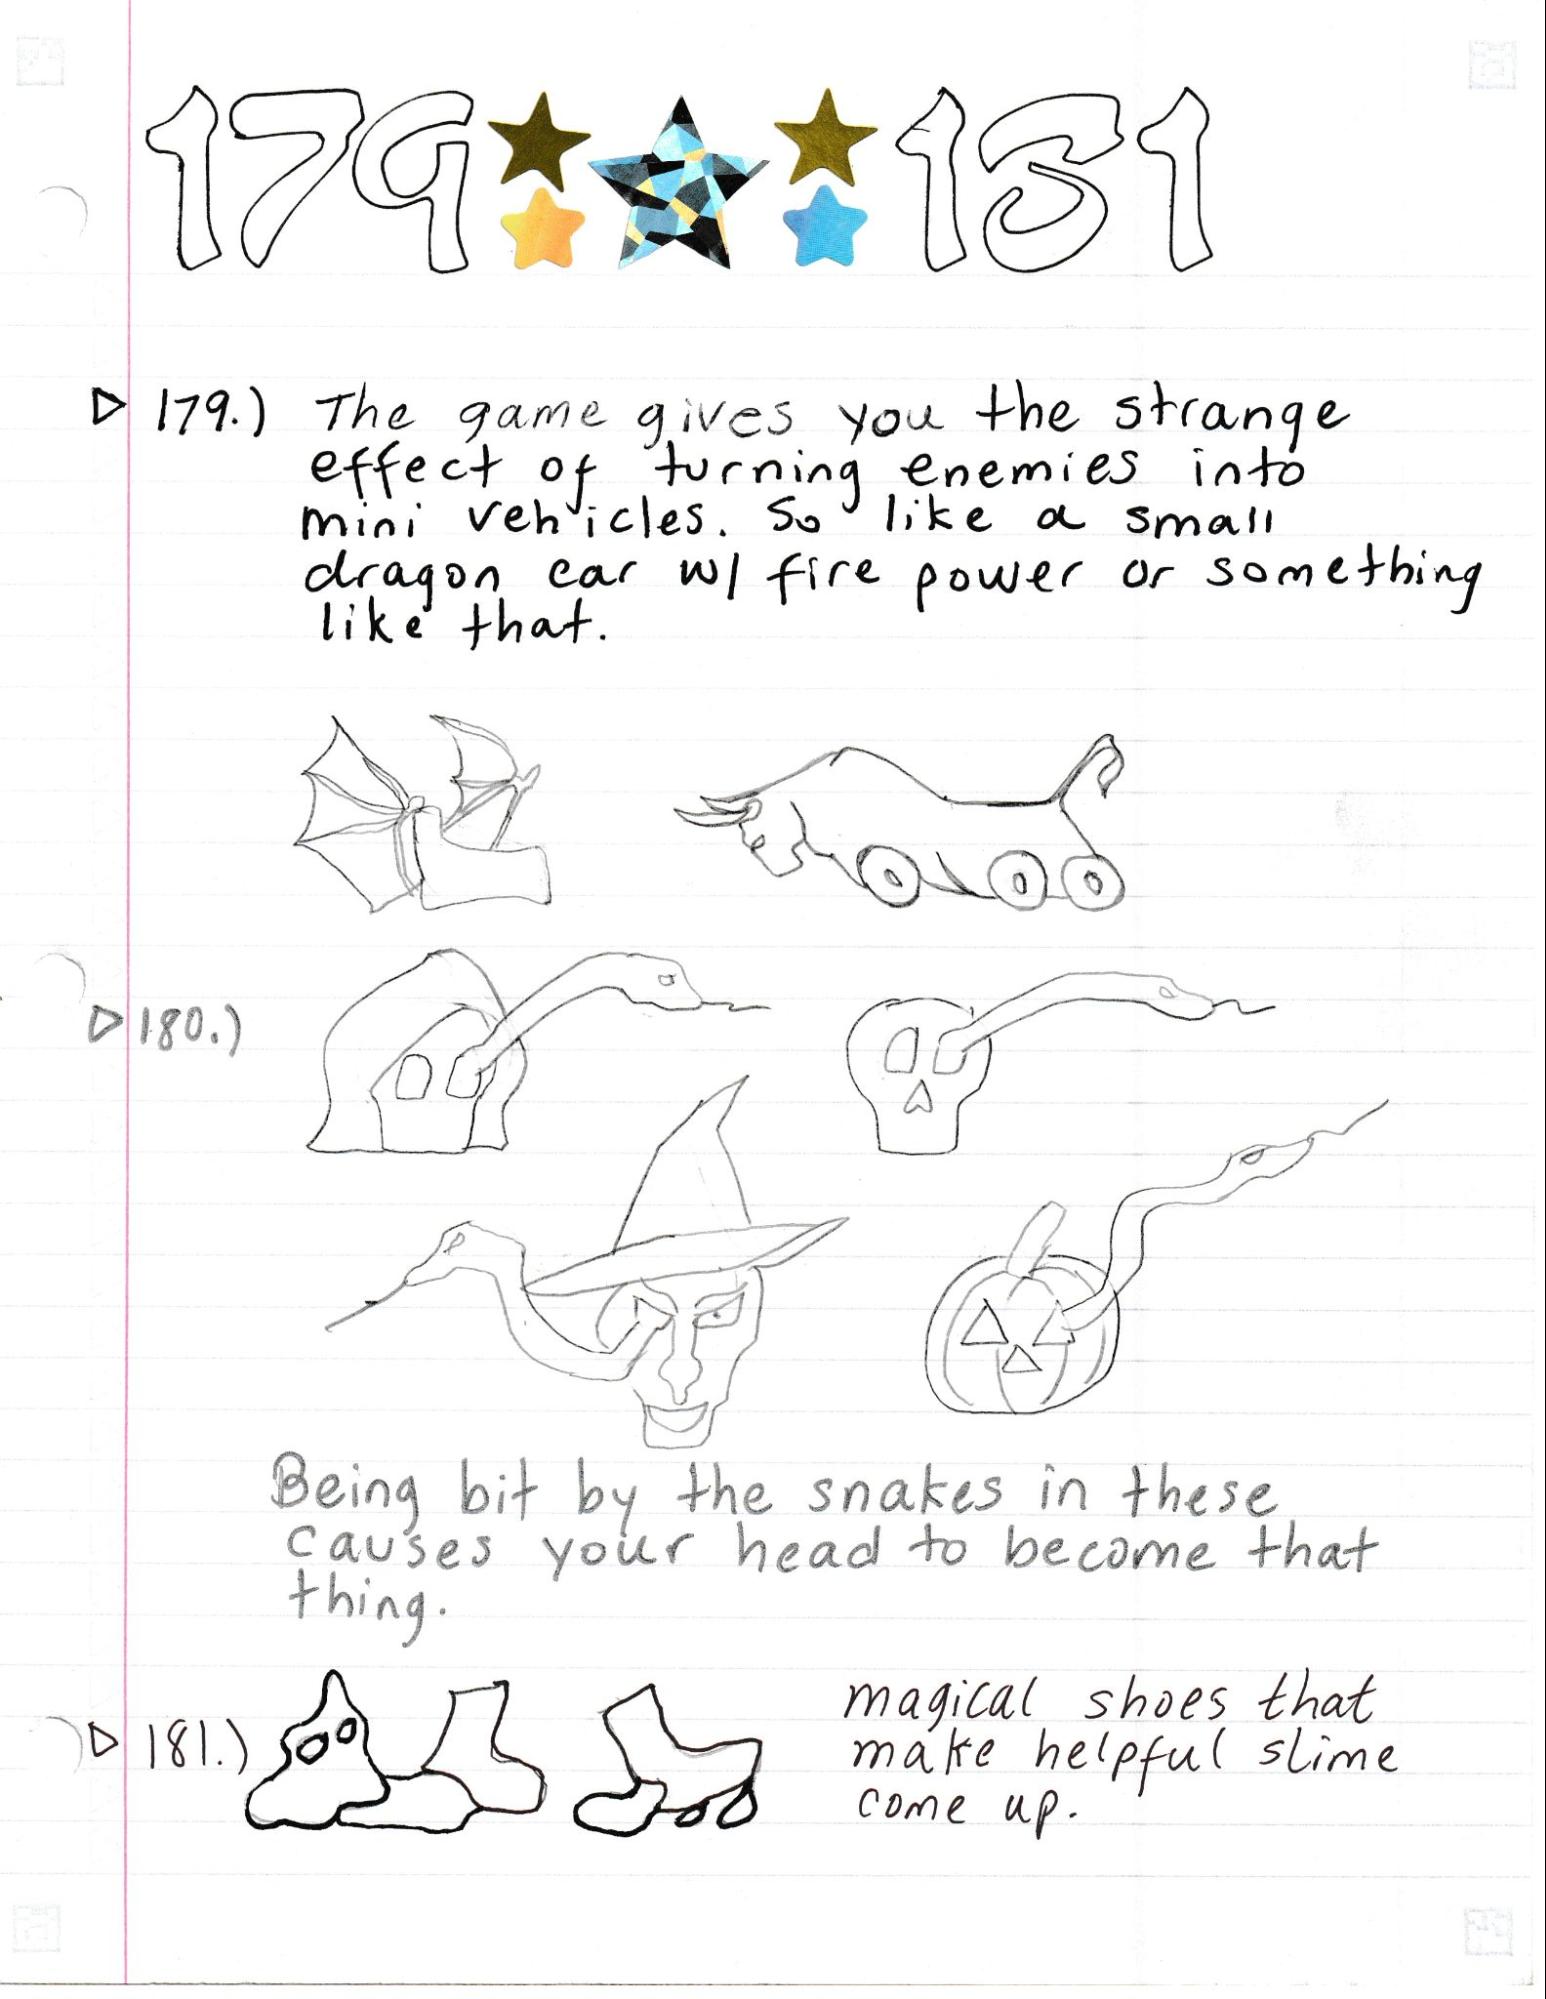 179 181
179.) The game gives you the strange
effect of turning enemies into
mini vehicles. So like a small
dragon car w/ fire power or something
like that.
180.)
Being bit by the snakes in these
causes your head to become that
thing.
181.) magical shoes that
make helpful slime
come up.